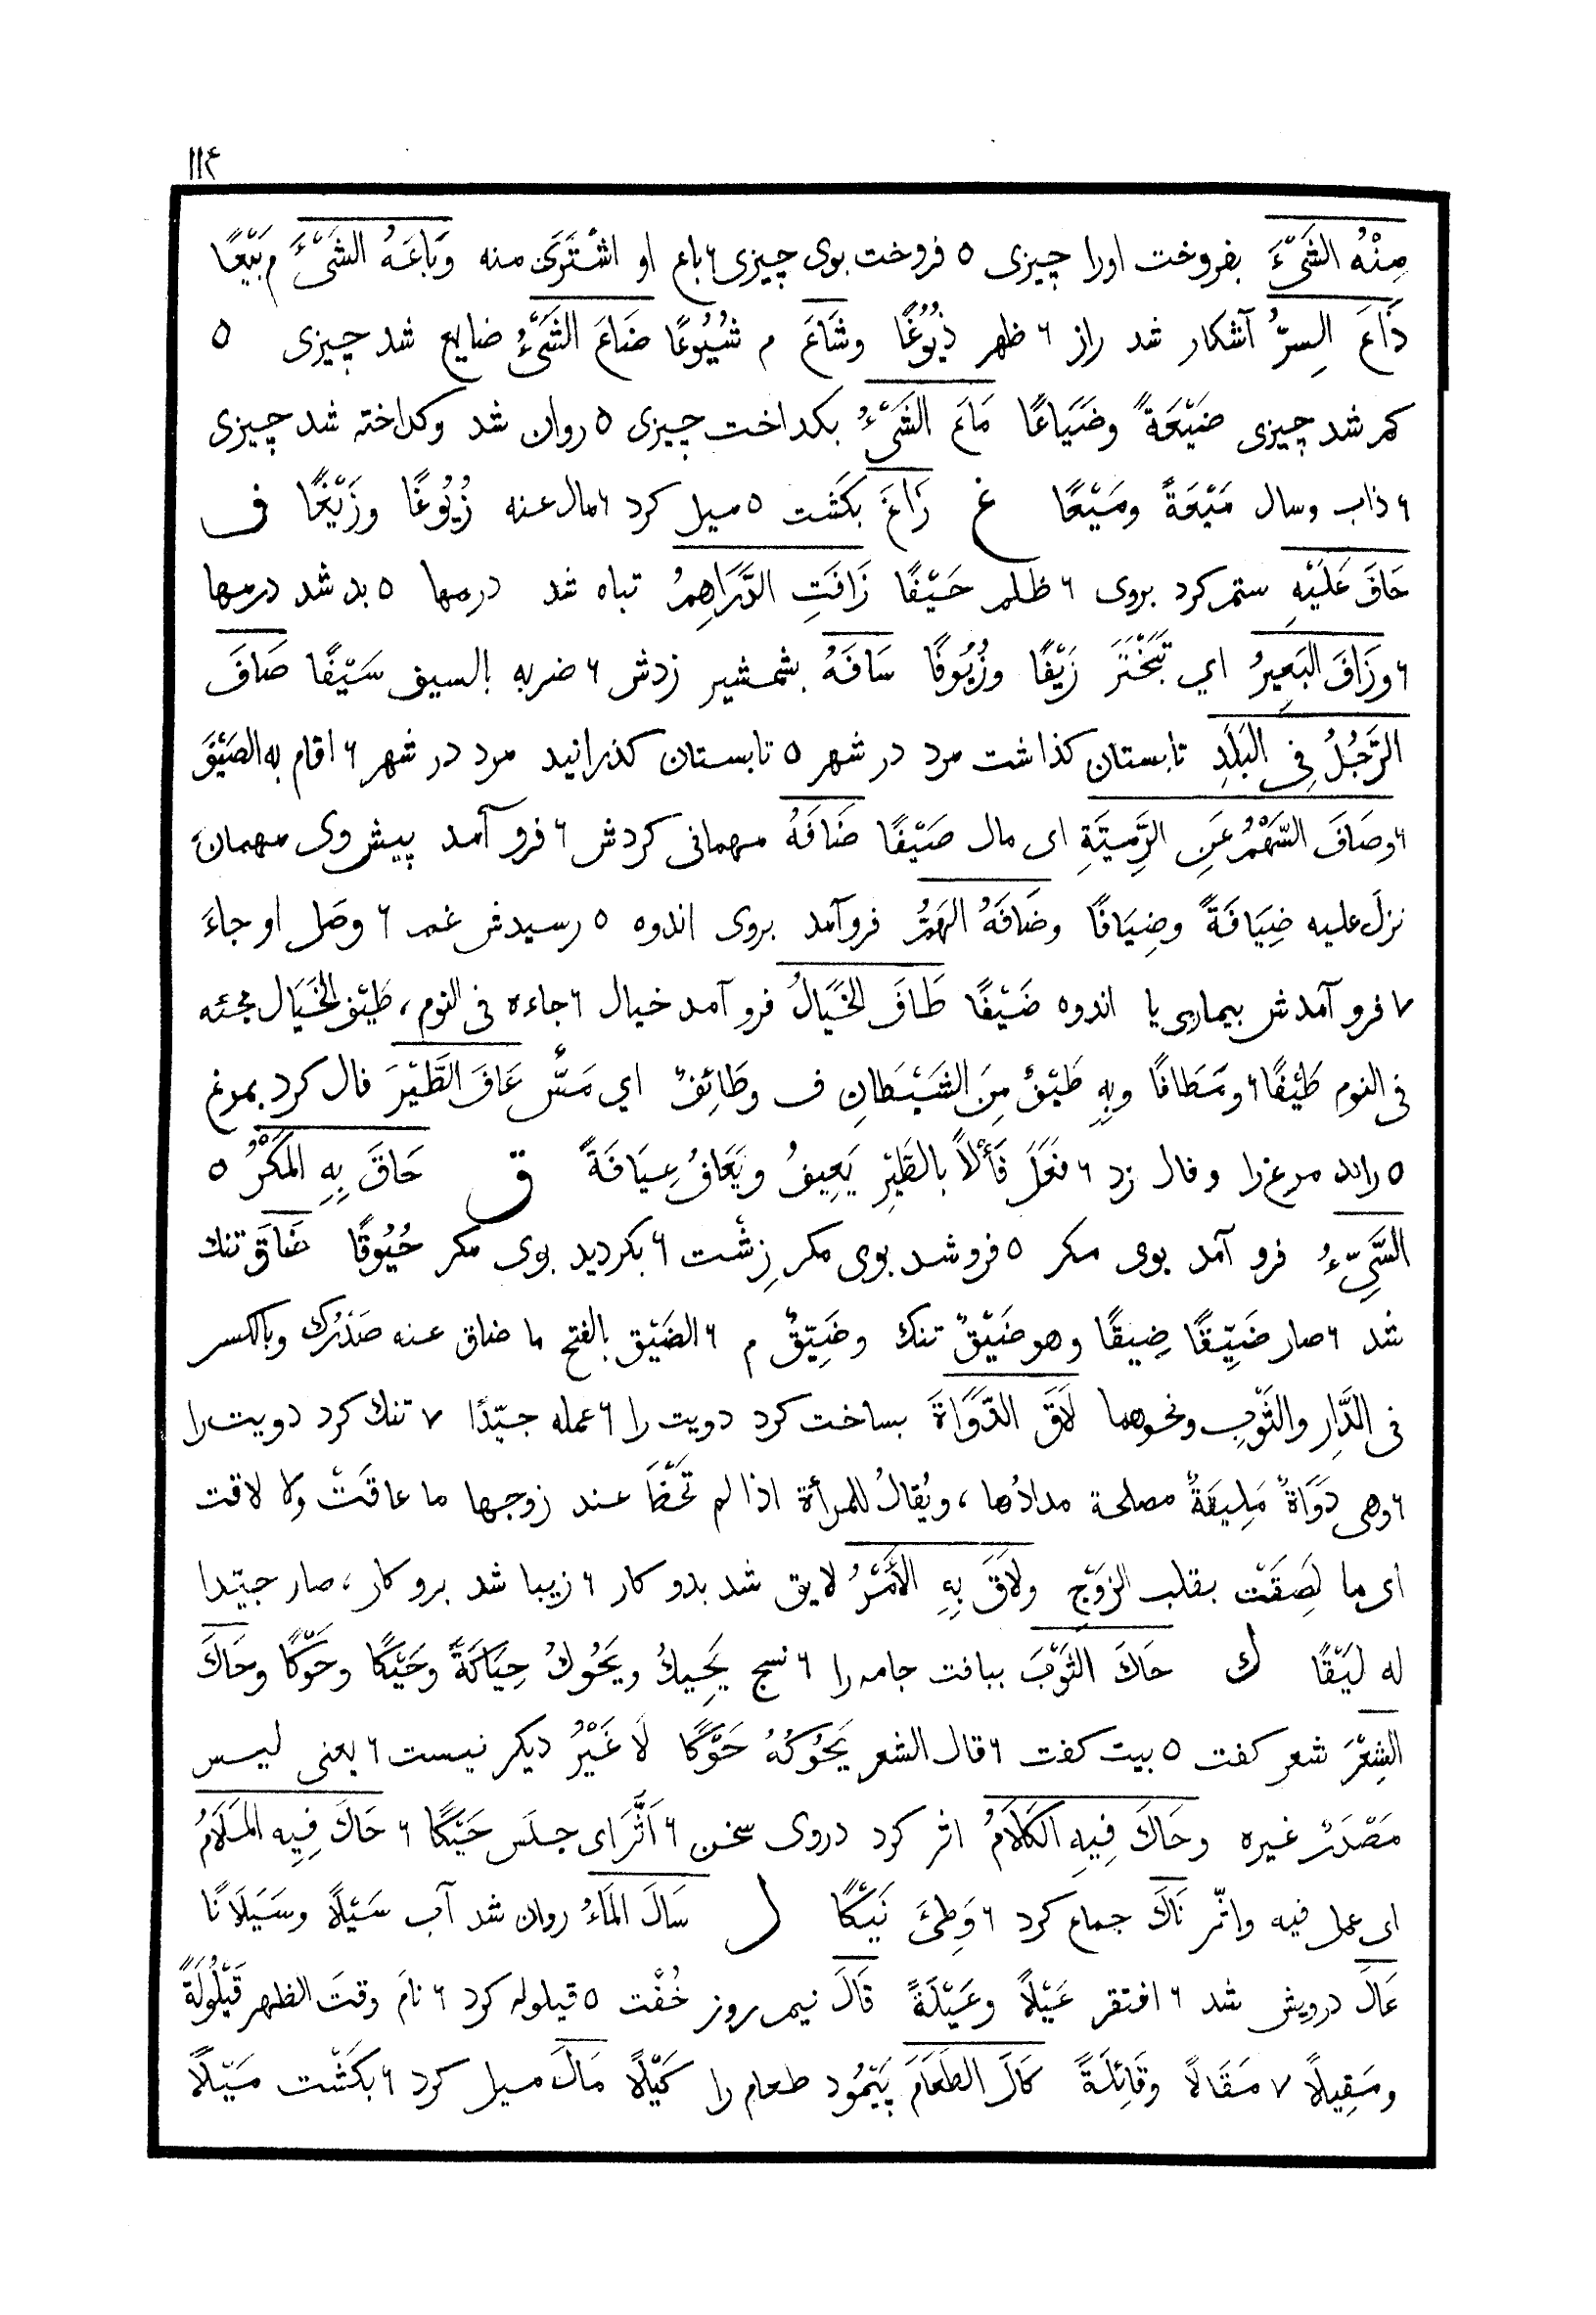 ۱۱۴
مِنْهُ الشَّیْءَ بفروخت اورا چیزی ٥ فروخت بوی چیزی ٦ باع او اشْتَرَىٰ منه وَبَاعَهُ الشَّیْءَ م بَیْعًا
ذَاعَ السِرُّ آشکار شد راز ٦ ظهر ذُیُوْعًا وشَاعَ م شُیُوْعًا ضَاعَ الشَیْءُ ضایع شد چیزی ٥
کم شد چیزی ضَیْعَةً وضَیَاعًا مَاعَ الشَیْءُ بکداخت چیزی ٥ روان شد وکداخته شد چیزی
٦ ذاب وسال مَیْعَةً ومَیْعًا غ زَاغَ بکَشت ٥ میل کرد ٦ مال عنه زُیُوْغًا وزَیْغًا ف
حَافَ عَلَیْهِ ستم کرد بروی ٦ ظلم حَیْفًا زَافَتِ الدَّرَاهِمُ تباه شد درمها ٥ بد شد درمها
٦ وزَافَ البَعِیرُ اي تَبَخْتَرَ زَیْفًا وزُیُوفًا سَافَهُ بشمشیر زدش ٦ ضربه بالسیف سَیْفًا صَافَ
الرَّجُلُ فِی البَلَدِ تابستان کذاشت مرد در شهر ٥ تابستان کذرانید مرد در شهر ٦ اقام به الصَیْفَ
٦ وصَافَ السَّهْمُ عَنِ الرَّمِیَّةِ ای مال صَیْفًا ضَافَهُ مهمانی کردش ٦ فرو آمد پیش وی مهمان
نزلَ علیه ضِیَافَةً وضِیَافًا وضَافَهُ الهَمُّ فروآمد بروی اندوه ٥ رسیدش غم ٦ وصَل او جاءَ
٧ فرو آمدش بیماری یا اندوه ضَیْفًا طَافَ الخَیَالُ فرو آمد خیال ٦ جاءه فی النوم، طَیْف الخَیَال مجئه
فی النوم طَیْفًا ٦ ومَطَافًا وبِهِ طَیْفٌ مِنَ الشَیْطَانِ ف وطَائِفٌ اي مَسٌّ عَافَ الطَّیْرَ فال کرد بمرغ
٥ راند مرغ را وفال زد ٦ فعَلَ فَأْلاً بالطَّیْرِ یَعِیفُ ویَعَافُ عِیَافَةً ق حَاقَ بِهِ المَکْرُ ٥
السَّیِّءُ فرو آمد بوی مکر ٥ فرو شد بوی مکر زِشْت ٦ بکردید بوی مکر حُیُوقًا ضَاقَ تنك
شد ٦ صار ضَیِّقًا ضِیقًا وهو ضَیْقٌ تنك وضَیِّقٌ م ٦ الضَیْق بالفتح ما ضاق عنه صَدْرُك وبالکسر
فی الدَّارِ والثَوْبِ ونحوهما لَاقَ الدَّوَاةَ بساخت کرد دویت را ٦ عمله جیّدًا ٧ تنك کرد دویت را
٦ وهی دَوَاةٌ مَلِیقَةٌ مصلحة مدادُها، ویُقالُ للمرأة اذا لم تَحْظَ عند زوجها ما عاقَتْ ولا لاقت
ای ما لَصِقَتْ بقلب الزوَّجِ ولَاقَ بِهِ الأَمْرُ لایق شد بدو کار ٦ زیبا شد برو کار، صار جیّدا
له لیَقًا ك حَاكَ الثَوْبَ ببافت جامه را ٦ نسج یَحِیكُ ویَحُوكُ حِیَاکَةً وحَیْکًا وحَوْکًا وحَاكَ
الشِعْرَ شعر کفت ٥ بیت کفت ٦ قال الشعر یَحُوکُهُ حَوْکًا لَا غَیْرُ دیکر نیست ٦ یعنی لیس
مَصْدَرٌ غیره وحَاكَ فِیهِ الکَلَامُ اثر کرد دروی سخن ٦ اَثَّرَ ای جلَس حَیْکًا ٦ حَاكَ فِیهِ المَلَامُ
ای عمل فیه واثّر نَاكَ جماع کرد ٦ وَطِئَ نَیْکًا ل سَالَ المَاءُ روان شد آب سَیْلًا وسَیَلَانًا
عَالَ درویش شد ٦ افتقر عَیْلًا وعَیْلَةً قَالَ نیم روز خُفْت ٥ قیلوله کرد ٦ نامَ وقتَ الظهر قَیْلُولَةً
ومَقِیلًا ٧ مَقَالًا وقَائِلَةً کَالَ الطَعَامَ پَیْمُود طعام را کَیْلًا مَالَ میل کرد ٦ بکَشْت مَیْلًا